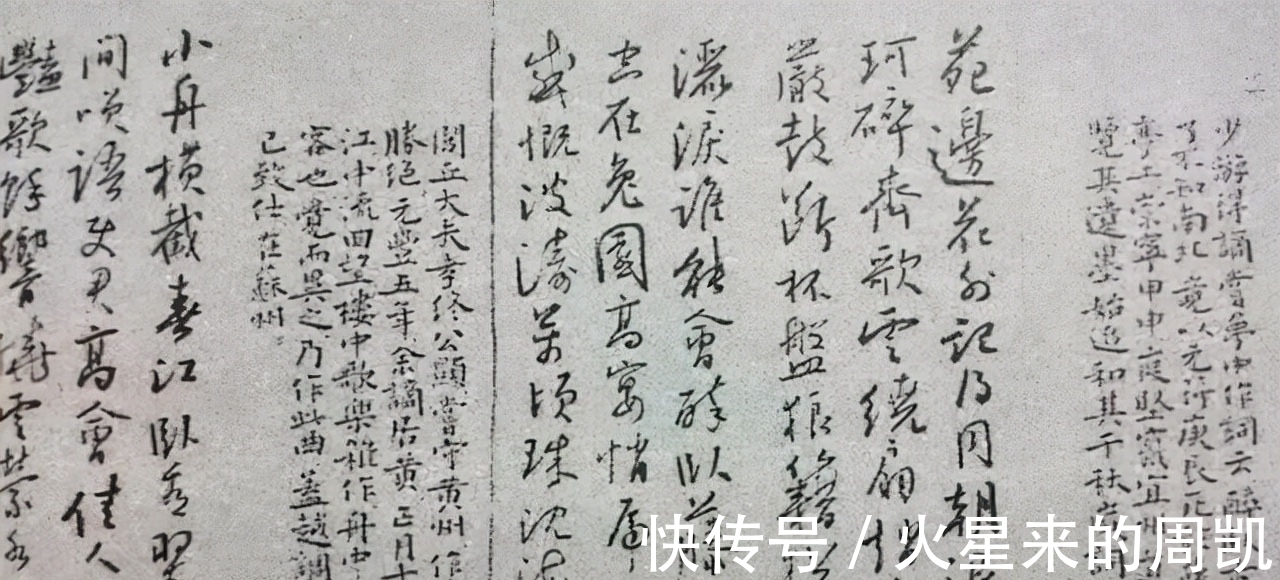 少游得謫嘗夢中作詞云醉
了不知南北竟以元符庚辰死
亭上崇寧甲申庭堅竄宜州
覽其遺墨始追和其千秋歲詞
苑邊花外記得同朝退
珂碎齊歌雲繞扇
嚴鼓斷杯盤狼籍猶
灑淚誰能會醉臥藤
空在兔園高宴悄虎
感慨波濤萬頃珠沈海
閭丘大夫孝終公顯嘗守黃州作
勝絕元豐五年余謫居黃正月十
江中流回望樓中歌樂雜作舟中
客也覺而異之乃作此曲蓋越調
已致仕在蘇州
小舟橫截春江臥看翠
間笑語使君高會佳人
豔歌餘響繞雲縈水
快传号 / 火星来的周凯